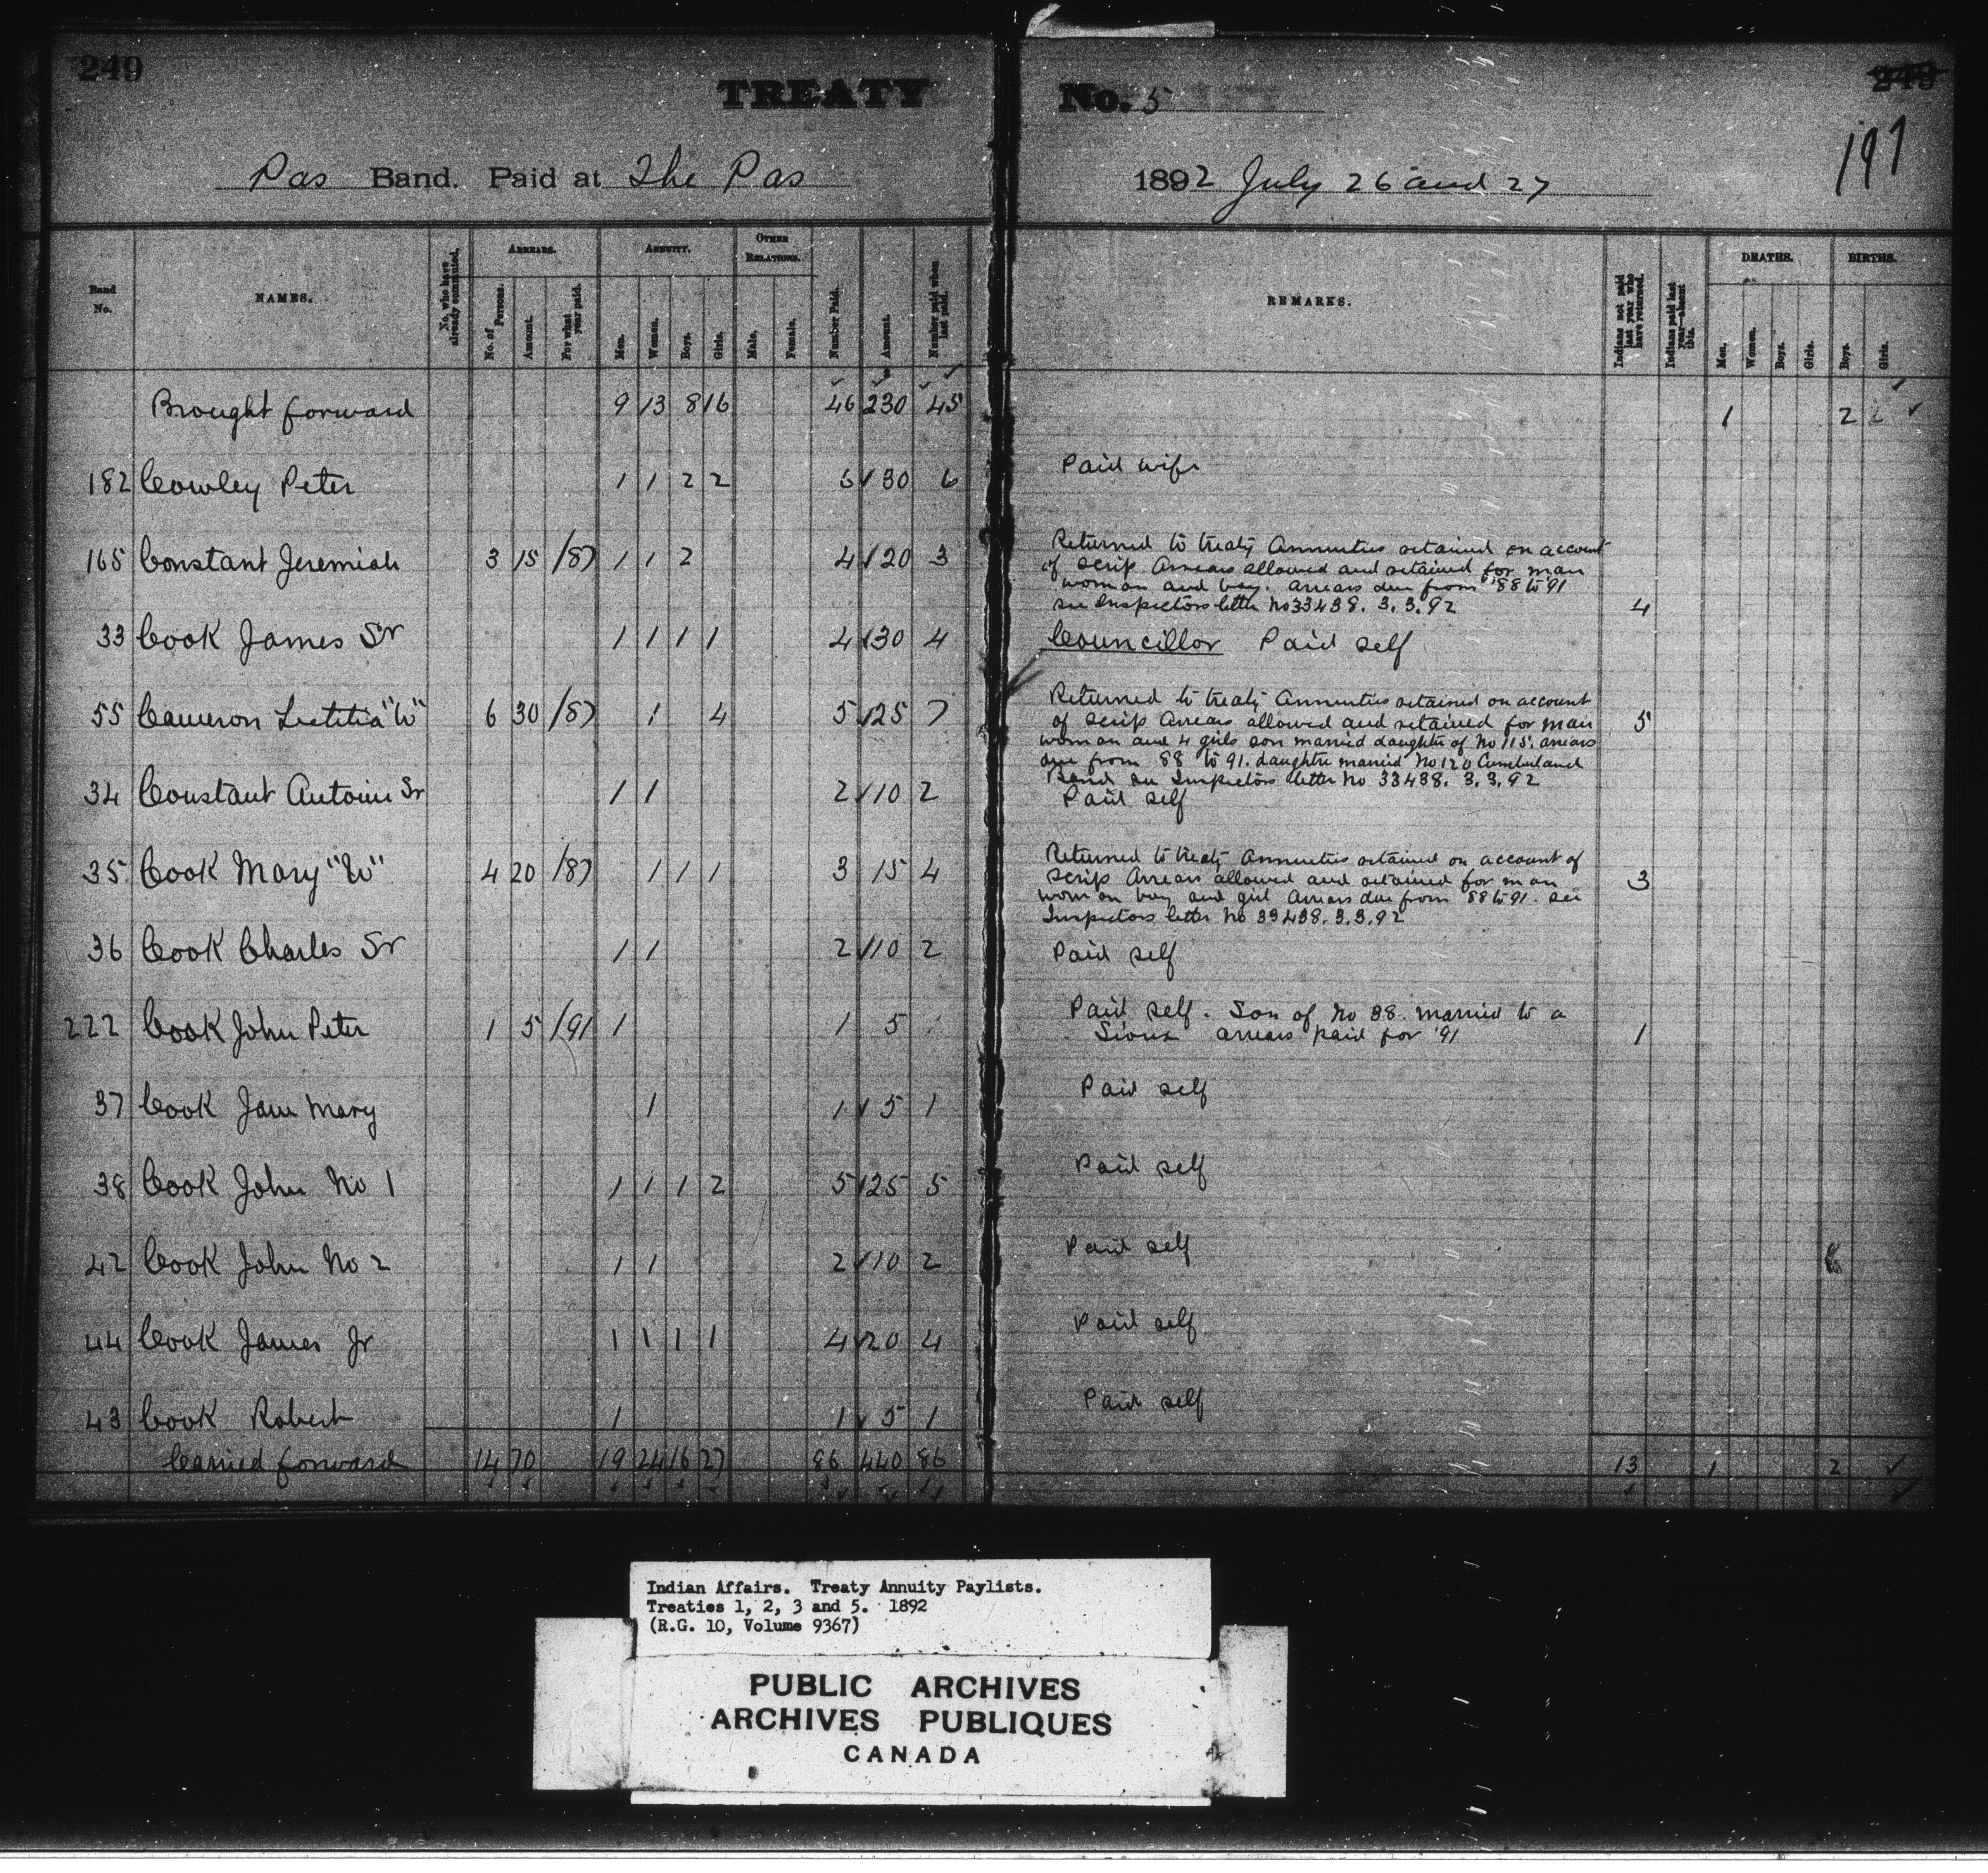 249
TREATY No. 5
249
197
Pas Band. Paid at The Pas 1892 July 26 and 27
Band No. NAMES. No. who have already commuted. ARREARS. No. of Persons. Amount. For what year paid. ANNUITY. Men. Women. Boys. Girls. OTHER RELATIONS. Male. Female. Number Paid. Amount. Number paid when last paid. REMARKS. Indians not paid last year who have returned. Indians paid last year—absent this. DEATHS. Men. Women. Boys. Girls. BIRTHS. Boys. Girls.
Brought forward 9 13 8 16 46 230 45 1 2
182 Cowley Peter 1 1 2 2 6 30 6 Paid wife
165 Constant Jeremiah 3 15 /87 1 1 2 4 20 3 Returned to treaty Annuities retained on account
of scrip Arrears allowed and retained for man
woman and boy. arrears due from '88 to '91
see Inspectors letter No 33438. 3.3.92 4
33 Cook James Sr 1 1 1 1 4 30 4 Councillor Paid self
55 Cameron Letitia "W" 6 30 /87 1 4 5 25 7 Returned to treaty Annuities retained on account
of scrip Arrears allowed and retained for man 5
woman and 4 girls son married daughter of No 115. arrears
due from 88 to 91. daughter married No 120 Cumberland
Band see Inspectors letter No 33438. 3.3.92
34 Constant Antoine Sr 1 1 2 10 2 Paid self
35 Cook Mary "W" 4 20 /87 1 1 1 3 15 4 Returned to treaty Annuities retained on account of
scrip Arrears allowed and retained for man 3
woman boy and girl Arrears due from '88 to 91. see
Inspectors letter No 33438. 3.3.92
36 Cook Charles Sr 1 1 2 10 2 Paid self
222 Cook John Peter 1 5 /91 1 1 5 Paid self. Son of No 38 married to a
Sioux arrears paid for '91 1
37 Cook Jane Mary 1 1 5 1 Paid self
38 Cook John No 1 1 1 1 2 5 25 5 Paid self
42 Cook John No 2 1 1 2 10 2 Paid self
44 Cook James Jr 1 1 1 1 4 20 4 Paid self
43 Cook Robert 1 1 5 1 Paid self
Carried forward 14 70 19 24 16 27 86 440 86 13 1 2
Indian Affairs. Treaty Annuity Paylists.
Treaties 1, 2, 3 and 5. 1892
(R.G. 10, Volume 9367)
PUBLIC ARCHIVES
ARCHIVES PUBLIQUES
CANADA